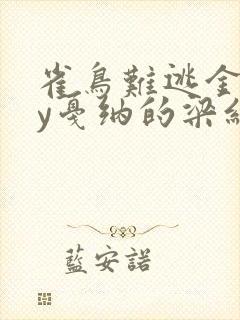 雀鳥難逃金
y戛纳的梁組
藍安諾